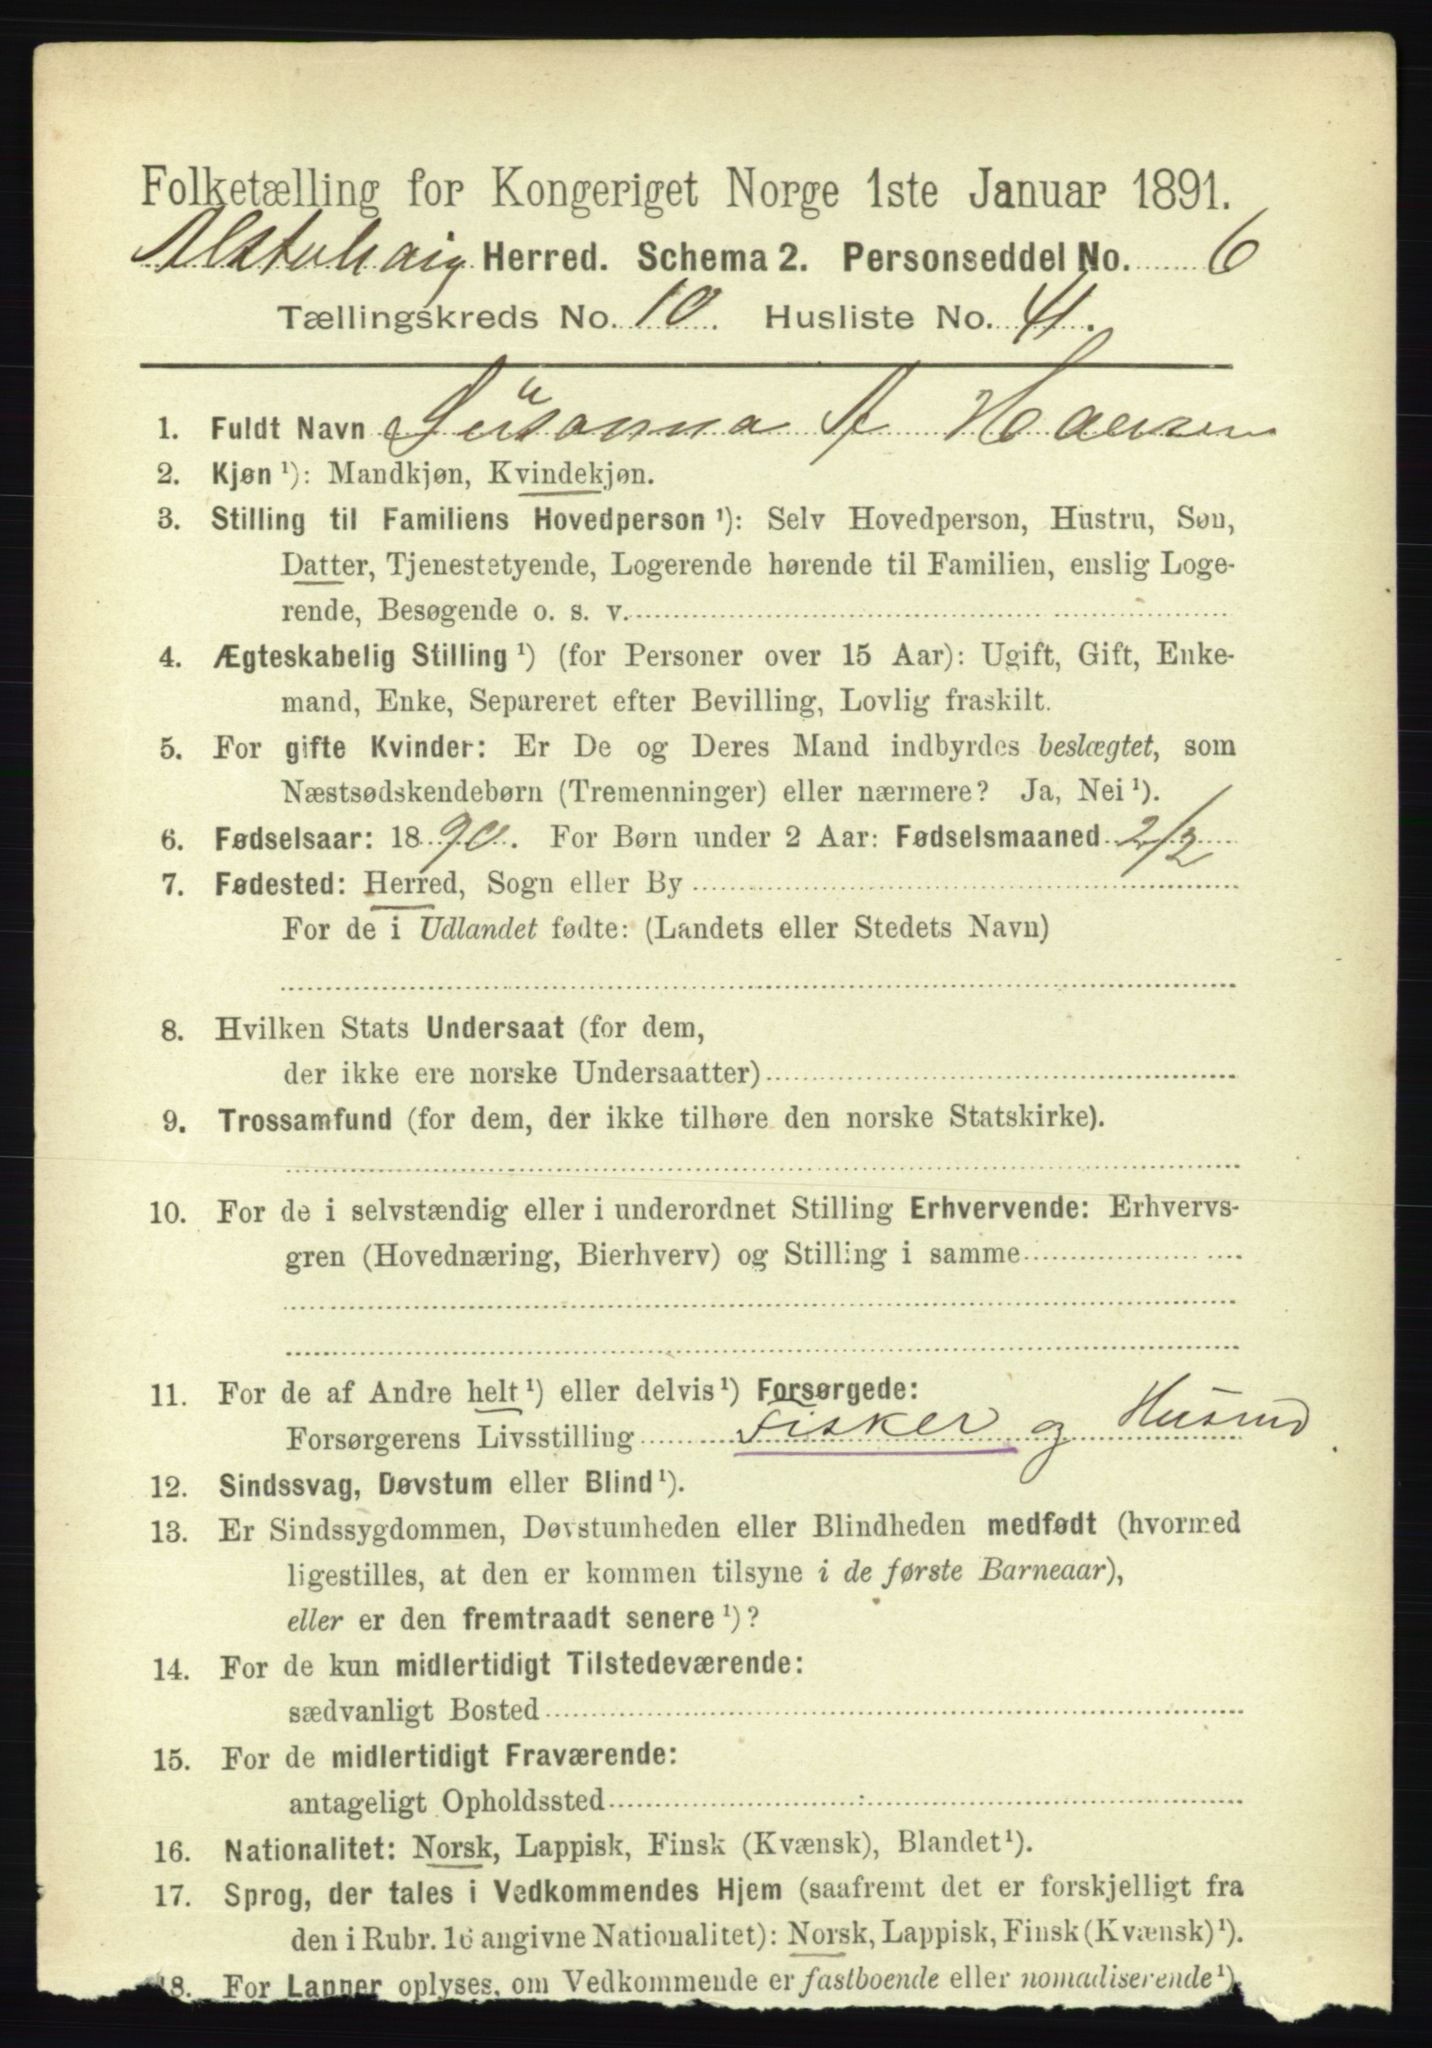 Folketælling for Kongeriget Norge 1ste Januar 1891.
Alstahaug Herred. Schema 2. Personseddel No. 6
Tællingskreds No. 10. Husliste No. 4.
1. Fuldt Navn Susanna A Hansen
2. Kjøn ¹): Mandkjøn, Kvindekjøn.
3. Stilling til Familiens Hovedperson ¹): Selv Hovedperson, Hustru, Søn,
Datter, Tjenestetyende, Logerende hørende til Familien, enslig Loge-
rende, Besøgende o. s. v.
4. Ægteskabelig Stilling ¹) (for Personer over 15 Aar): Ugift, Gift, Enke-
mand, Enke, Separeret efter Bevilling, Lovlig fraskilt.
5. For gifte Kvinder: Er De og Deres Mand indbyrdes beslægtet, som
Næstsødskendebørn (Tremenninger) eller nærmere? Ja, Nei ¹).
6. Fødselsaar: 1890. For Børn under 2 Aar: Fødselsmaaned 2/2
7. Fødested: Herred, Sogn eller By
For de i Udlandet fødte: (Landets eller Stedets Navn)
8. Hvilken Stats Undersaat (for dem,
der ikke ere norske Undersaatter)
9. Trossamfund (for dem, der ikke tilhøre den norske Statskirke).
10. For de i selvstændig eller i underordnet Stilling Erhvervende: Erhvervs-
gren (Hovednæring, Bierhverv) og Stilling i samme
11. For de af Andre helt ¹) eller delvis ¹) Forsørgede:
Forsørgerens Livsstilling Fisker og Husmd
12. Sindssvag, Døvstum eller Blind ¹).
13. Er Sindssygdommen, Døvstumheden eller Blindheden medfødt (hvormed
ligestilles, at den er kommen tilsyne i de første Barneaar),
eller er den fremtraadt senere ¹)?
14. For de kun midlertidigt Tilstedeværende:
sædvanligt Bosted
15. For de midlertidigt Fraværende:
antageligt Opholdssted
16. Nationalitet: Norsk, Lappisk, Finsk (Kvænsk), Blandet ¹).
17. Sprog, der tales i Vedkommendes Hjem (saafremt det er forskjelligt fra
den i Rubr. 16 angivne Nationalitet): Norsk, Lappisk, Finsk (Kvænsk) ¹).
18. For Lapper oplyses, om Vedkommende er fastboende eller nomadiserende ¹)